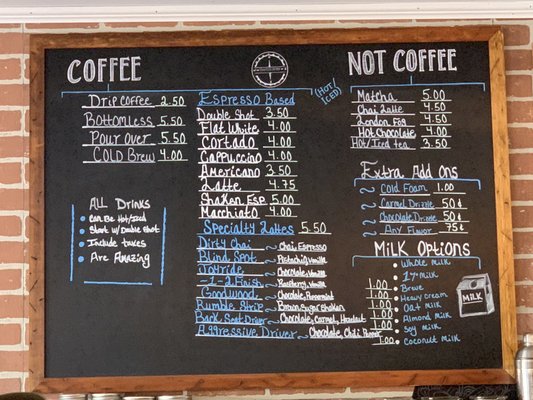 COFFEE
DRIP COFFEE 2.50
BOTTOMLESS 5.50
POUR OVER 5.50
COLD BREW 4.00
ALL DRINKS
CAN BE HOT/ICED
START W/ DOUBLE SHOT
INCLUDE TAXES
ARE AMAZING
ESPRESSO BASED
(HOT/ICED)
DOUBLE SHOT 3.50
FLAT WHITE 4.00
CORTADO 4.00
CAPPUCCINO 4.00
AMERICANO 3.50
LATTE 4.75
SHAKEN ESP. 5.00
MACCHIATO 4.00
SPECIALTY LATTES 5.50
DIRTY CHAI ~ CHAI, ESPRESSO
BLIND SPOT ~ PISTACHIO, VANILLA
JOYRIDE ~ CHOCOLATE, VANILLA
-1-2 FINISH ~ RASPBERRY, VANILLA
GOODWOOD ~ CHOCOLATE, PEPPERMINT
RUMBLE STRIP ~ BROWN SUGAR SHAKEN
BACK SEAT DRIVER ~ CHOCOLATE, CARMEL, HAZELNUT
AGGRESSIVE DRIVER ~ CHOCOLATE, CHILI PEPPER
NOT COFFEE
MATCHA 5.00
CHAI LATTE 4.50
LONDON FOG 4.50
HOT CHOCOLATE 4.00
HOT/ICED TEA 3.50
EXTRA ADD ONS
~ COLD FOAM 1.00
~ CARMEL DRIZZLE 50¢
~ CHOCOLATE DRIZZLE 50¢
~ ANY FLAVOR 75¢
MILK OPTIONS
WHOLE MILK
1% MILK
1.00 BREVE
1.00 HEAVY CREAM
1.00 OAT MILK
1.00 ALMOND MILK
1.00 SOY MILK
1.00 COCONUT MILK
MILK